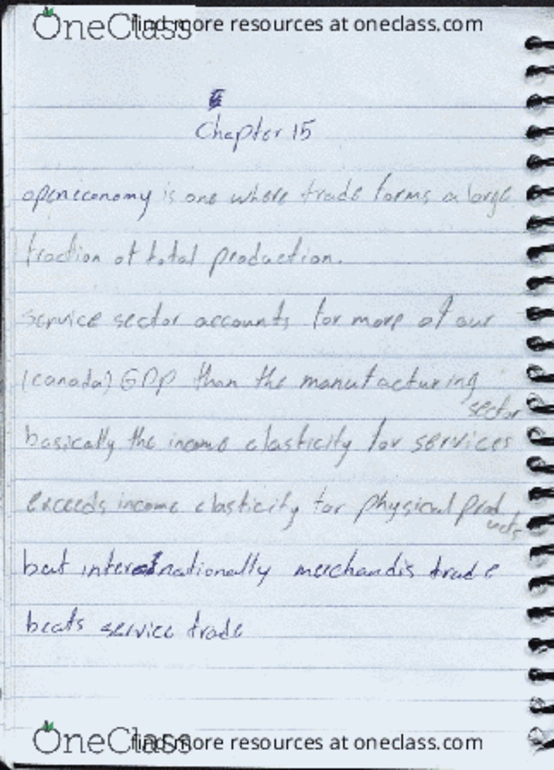 OneClass find more resources at oneclass.com
Chapter 15
open economy is one where trade forms a large
fraction of total production.
service sector accounts for more of our
(canada) GDP than the manufacturing
sector
basically the income elasticity for services
exceeds income elasticity for physical prod
ucts
but internationally merchandis trade
beats service trade
OneClass find more resources at oneclass.com